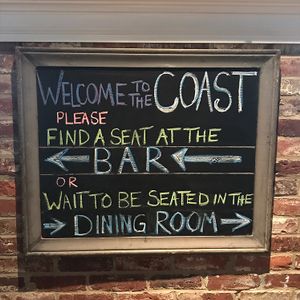 WELCOME TO THE COAST
PLEASE
FIND A SEAT AT THE
BAR
OR
WAIT TO BE SEATED IN THE
DINING ROOM